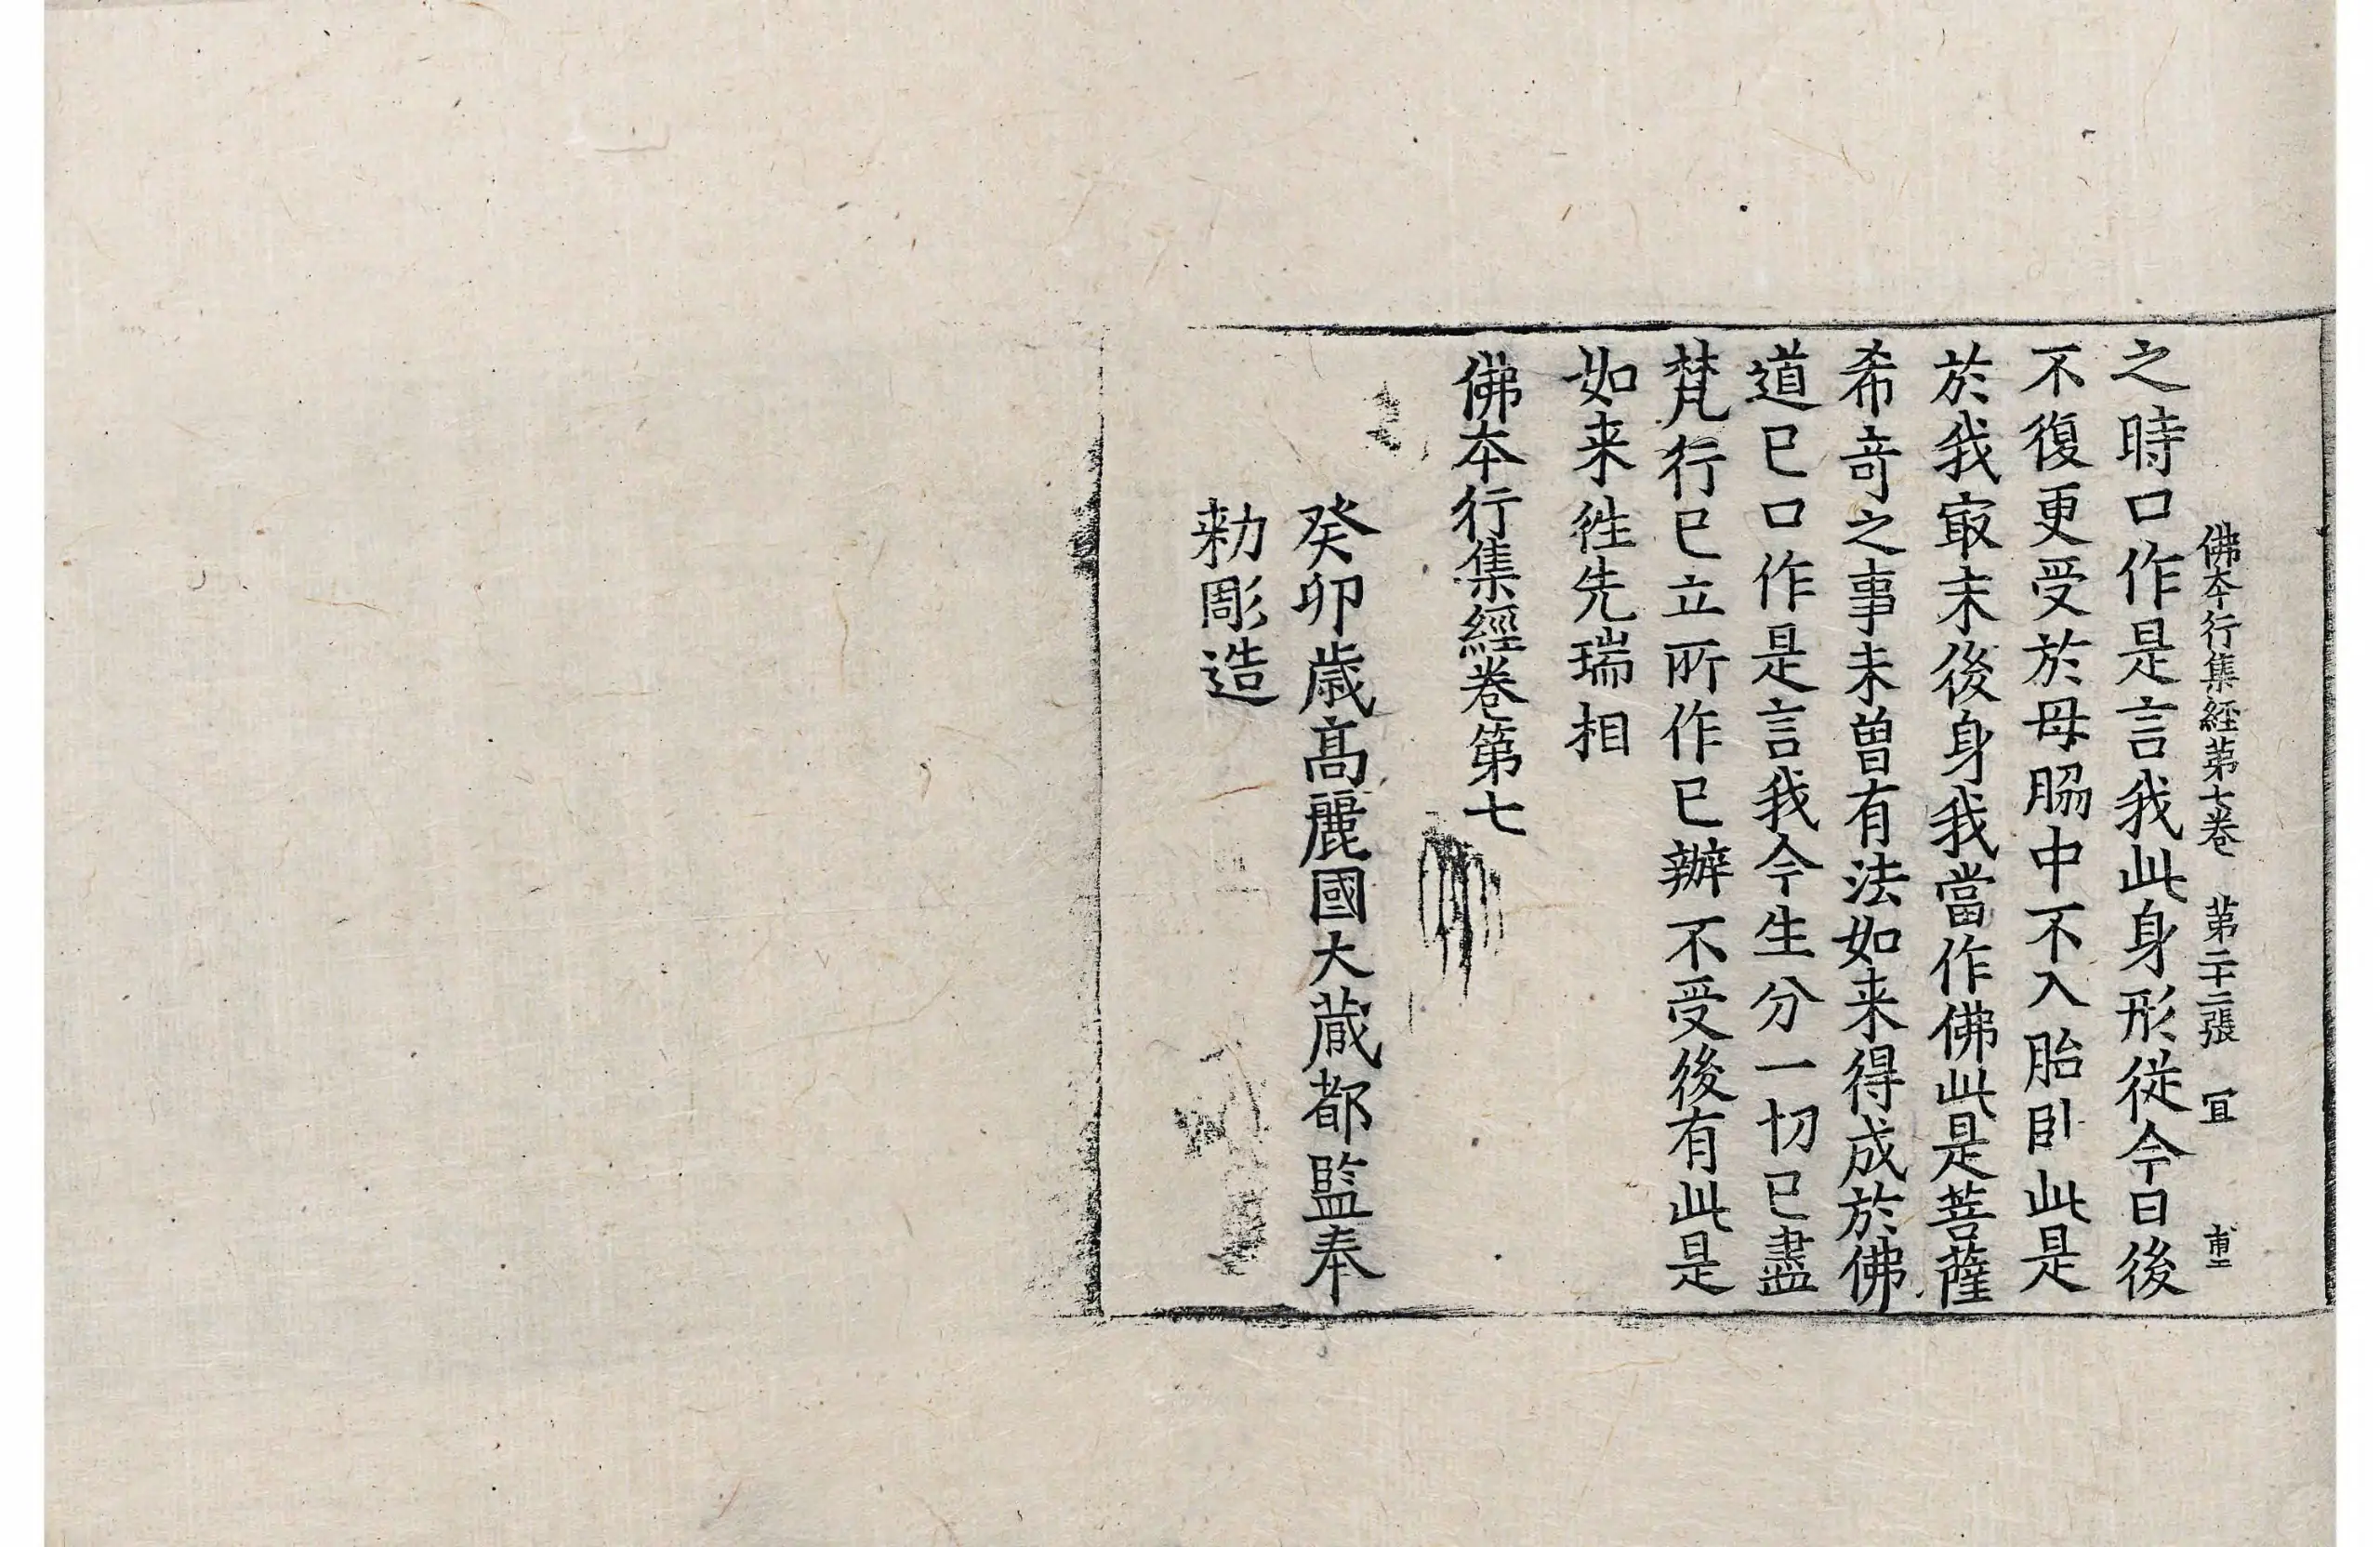 佛本行集經第七卷 第二十二張 冝 甫二
之時口作是言我此身形從今日後
不復更受於母脇中不入胎卧此是
於我㝡末後身我當作佛此是菩薩
希竒之事未曽有法如来得成於佛
道已口作是言我今生分一切已盡
梵行已立所作已辦不受後有此是
如来徃先瑞相
佛本行集經卷第七
癸卯歳髙麗國大藏都監奉
勑彫造